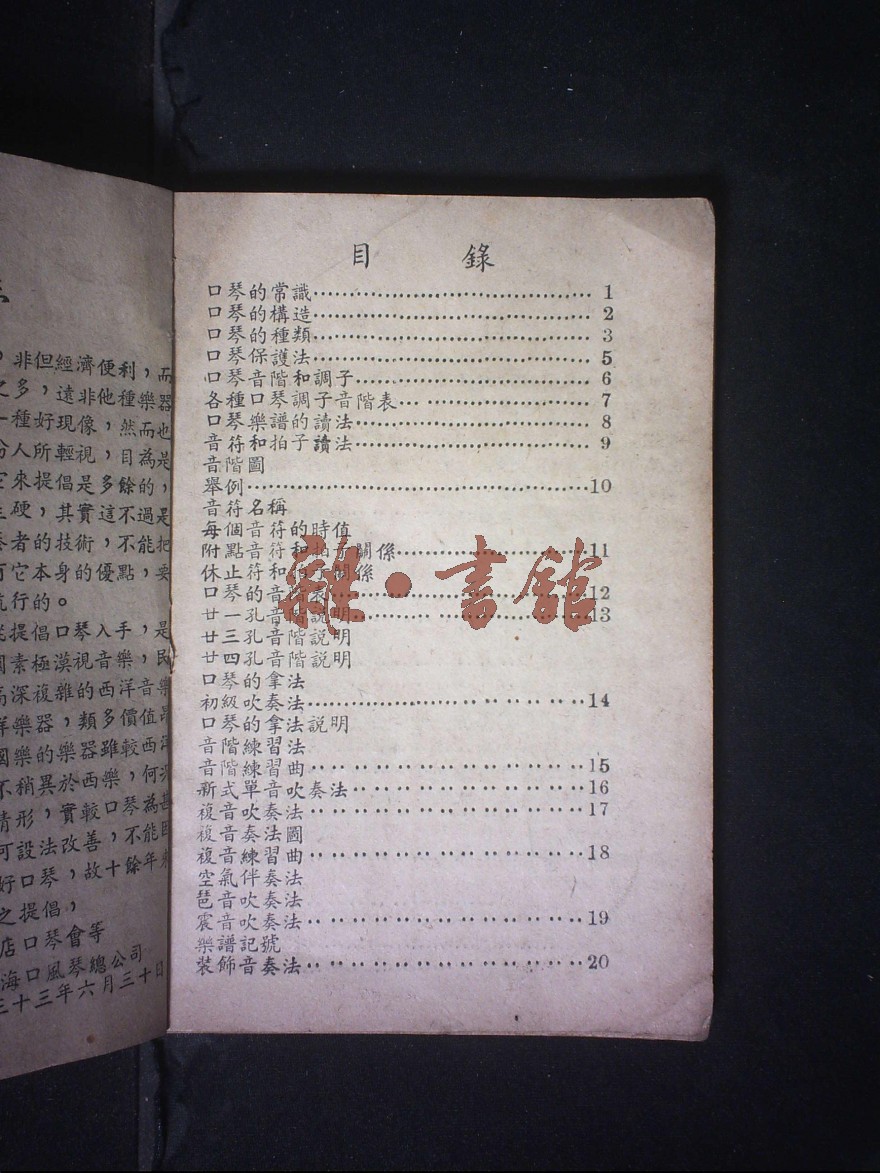 ，非但經濟便利，而
之多，遠非他種樂器
一種好現像，然而也
人所輕視，目為是
來提倡是多餘的，
硬，其實這不過是
者的技術，不能把
它本身的優點，要
行的。
提倡口琴入手，是
素極漠視音樂，民
深複雜的西洋音樂
樂器，類多價值昂
國樂的樂器雖較西洋
不稍異於西樂，何況
情形，實較口琴為甚
可設法改善，不能因
好口琴，故十餘年來
之提倡，
店口琴會等
海口風琴總公司
三十三年六月三十日
目錄
口琴的常識 1
口琴的構造 2
口琴的種類 3
口琴保護法 5
口琴音階和調子 6
各種口琴調子音階表 7
口琴樂譜的讀法 8
音符和拍子讀法 9
音階圖
舉例 10
音符名稱
每個音符的時值
附點音符和拍子關係 11
休止符和拍子關係
口琴的音階表 12
廿一孔音階說明 13
廿三孔音階說明
廿四孔音階說明
口琴的拿法
初級吹奏法 14
口琴的拿法說明
音階練習法
音階練習曲 15
新式單音吹奏法 16
複音吹奏法 17
複音奏法圖
複音練習曲 18
空氣伴奏法
琶音吹奏法
震音吹奏法 19
樂譜記號
裝飾音奏法 20
雜·書館